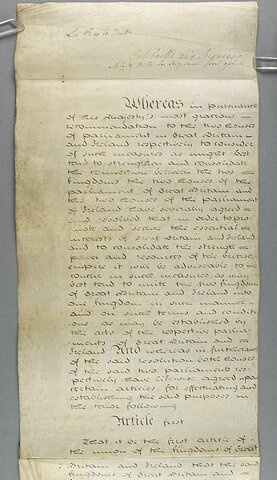 Le Roy le Veult
Soit baillé aux Seigneurs
A
Whereas in pursuance
of His Majesty's most gracious
recommendation to the two Houses
of Parliament in Great Britain
and Ireland respectively to consider
of such measures as might best
tend to strengthen and consolidate
the connection between the two
Kingdoms the two Houses of the
Parliament of Great Britain and
the two Houses of the Parliament
of Ireland have severally agreed
and resolved that in order to pro
mote and secure the essential
interests of Great Britain and Ireland
and to consolidate the strength
power and resources of the British
Empire it will be adviseable to
concur in such measures as may
best tend to unite the two Kingdoms
of Great Britain and Ireland into
one Kingdom in such manner
and on such terms and condit
ions as may be established by
the acts of the respective parlia
ments of Great Britain and
Ireland And whereas in furtherance
of the said resolution both Houses
of the said two Parliaments res
pectively have likewise agreed upon
certain articles for effectuating and
establishing the said purposes in
the tenor following
Article first
That it be the first article of
the union of the Kingdoms of Great
Britain and Ireland that the said
Kingdoms of Great Britain and